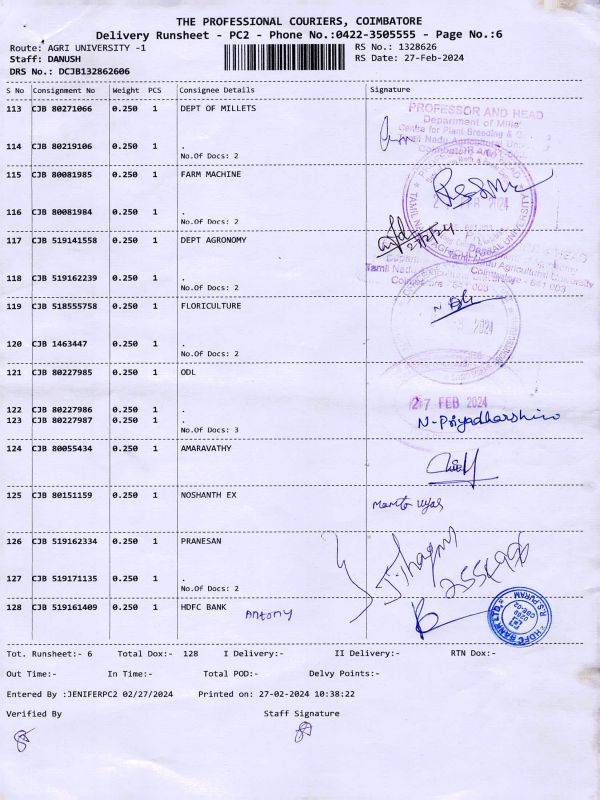 THE PROFESSIONAL COURIERS, COIMBATORE
Delivery Runsheet - PC2 - Phone No.:0422-3505555 - Page No.:6
Route: AGRI UNIVERSITY -1
RS No.: 1328626
Staff: DANUSH
RS Date: 27-Feb-2024
DRS No.: DCJB132862606
S No Consignment No Weight PCS Consignee Details Signature
113 CJB 80271066 0.250 1 DEPT OF MILLETS
PROFESSOR AND HEAD
Department of
Centre for Plant Breeding &
114 CJB 80219106 0.250 1 .
No.Of Docs: 2
115 CJB 80081985 0.250 1 FARM MACHINE
2024
116 CJB 80081984 0.250 1 .
No.Of Docs: 2
117 CJB 519141558 0.250 1 DEPT AGRONOMY
27/2/24
118 CJB 519162239 0.250 1 .
Tamil Nadu Agricultural University
Coimbatore - 641 003
No.Of Docs: 2
119 CJB 518555758 0.250 1 FLORICULTURE
2024
120 CJB 1463447 0.250 1 .
No.Of Docs: 2
121 CJB 80227985 0.250 1 ODL
27 FEB 2024
122 CJB 80227986 0.250 1 .
123 CJB 80227987 0.250 1 .
N-Priyadharshini
No.Of Docs: 3
124 CJB 80055434 0.250 1 AMARAVATHY
125 CJB 80151159 0.250 1 NOSHANTH EX
126 CJB 519162334 0.250 1 PRANESAN
127 CJB 519171135 0.250 1 .
No.Of Docs: 2
128 CJB 519161409 0.250 1 HDFC BANK
Antony
HDFC BANK LTD
R.S PURAM
Tot. Runsheet:- 6 Total Dox:- 128 I Delivery:- II Delivery:- RTN Dox:-
Out Time:- In Time:- Total POD:- Delvy Points:-
Entered By :JENIFERPC2 02/27/2024 Printed on: 27-02-2024 10:38:22
Verified By Staff Signature